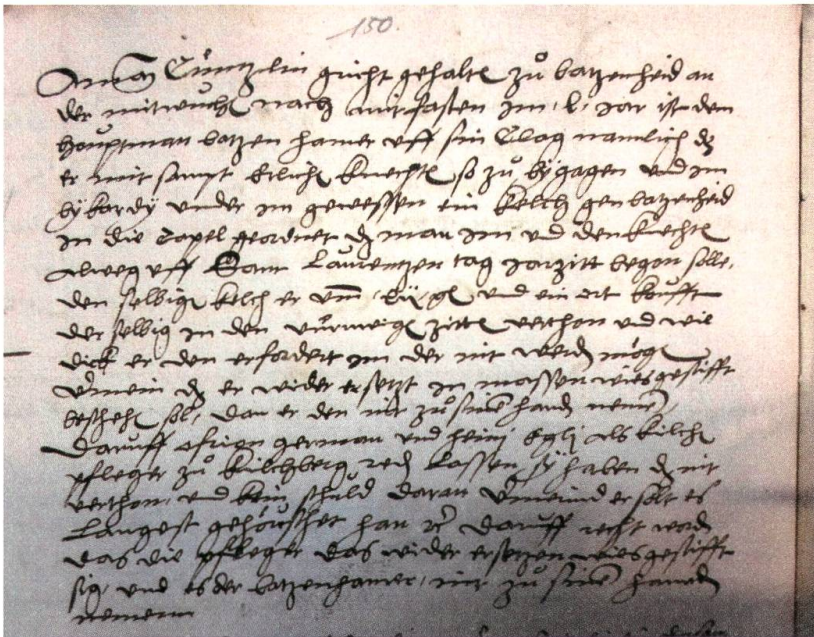 150.
Aman Cůntzlin gricht gehalten zů batzenheid an
der mitwuchen nach mitfasten im . l . jar ist dem
houptman batzen hamer uff sin Clag namlich dz
er mit sampt etlichen knechten so zů bÿgagen und im
bykardÿ under im gewessen ein kelch gen batzenheid
in die Capel geordnet dz man im und den knechten
alweg uff Sant Laurentzen tag jarzitt began solle,
den selbigen kelch er um gl und ein ort koufft
der selbig in den zitten verthon und wie
dick er den erfordert im der nit werden mögen
vermein dz er wider ersetzt in massen wies gestifft
beschehen sol, dan er den nit zů sinen handen nemen,
Daruff german und heini Eglj als kilchen
pfleger zů kilchberg reden lassen sÿ haben dz nit
verthon, und kein schuld daran vermeind er solt es
Langest geheuschet han Daruff recht worden
das die pfleger das wider ersetzen wies gestifft
sig, und es der batzenhamer, nit zů sinen handen
nemen